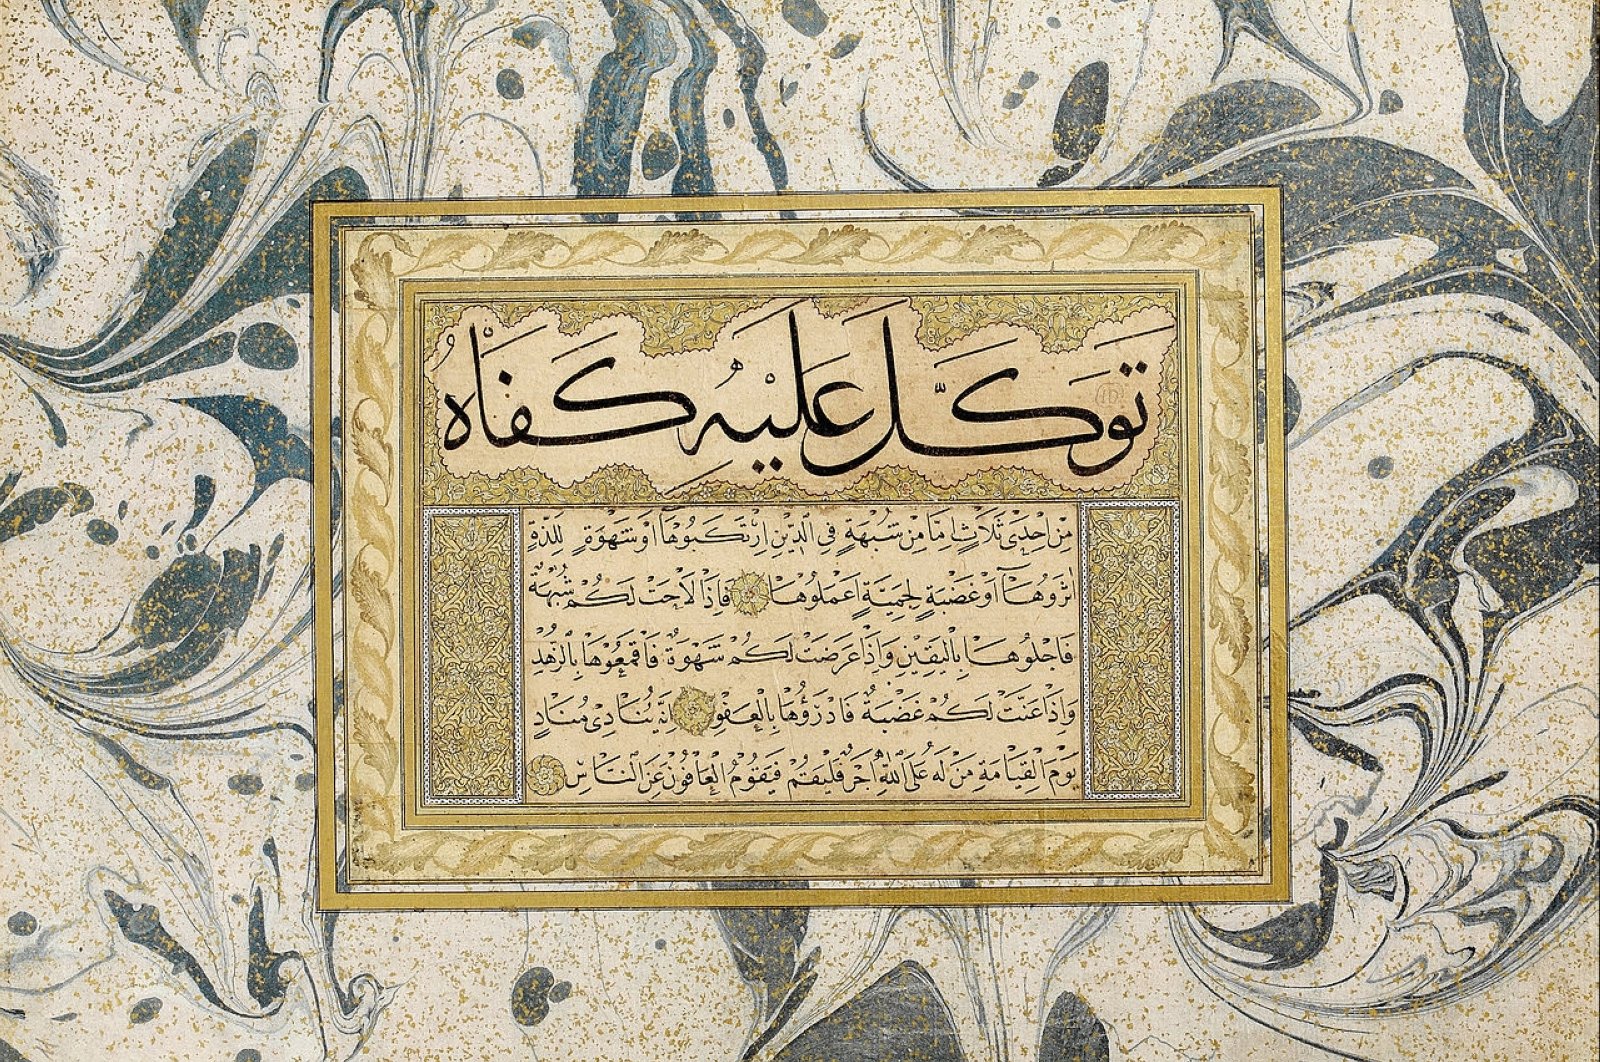 تَوَكَّلَ عَلَيْهِ كَفَاهُ
مِنْ اِحْدٰى ثَلَاثٍ اِمَّا مِنْ شُبْهَةٍ فِى الدِّينِ اِرْتَكَبُوْهَا اَوْ شَهْوَةٍ لِلَذَّةٍ
اٰثَرُوْهَا اَوْ غَضْبَةٍ لِحَمِيَّةٍ اَعْمَلُوْهَا فَاِذَا لَاحَتْ لَكُمْ شُبْهَةٌ
فَاجْلُوْهَا بِالْيَقِيْنِ وَاِذَا عَرَضَتْ لَكُمْ شَهْوَةٌ فَاقْمَعُوْهَا بِالزُّهْدِ
وَاِذَا عَنَّتْ لَكُمْ غَضْبَةٌ فَادْرَؤُهَا بِالْعَفْوِ اِنَّهُ يُنَادِىْ مُنَادٍ
يَوْمَ الْقِيَامَةِ مَنْ لَهُ عَلَى اللّٰهِ اَجْرٌ فَلْيَقُمْ فَيَقُوْمُ الْعَافُوْنَ عَنِ النَّاسِ